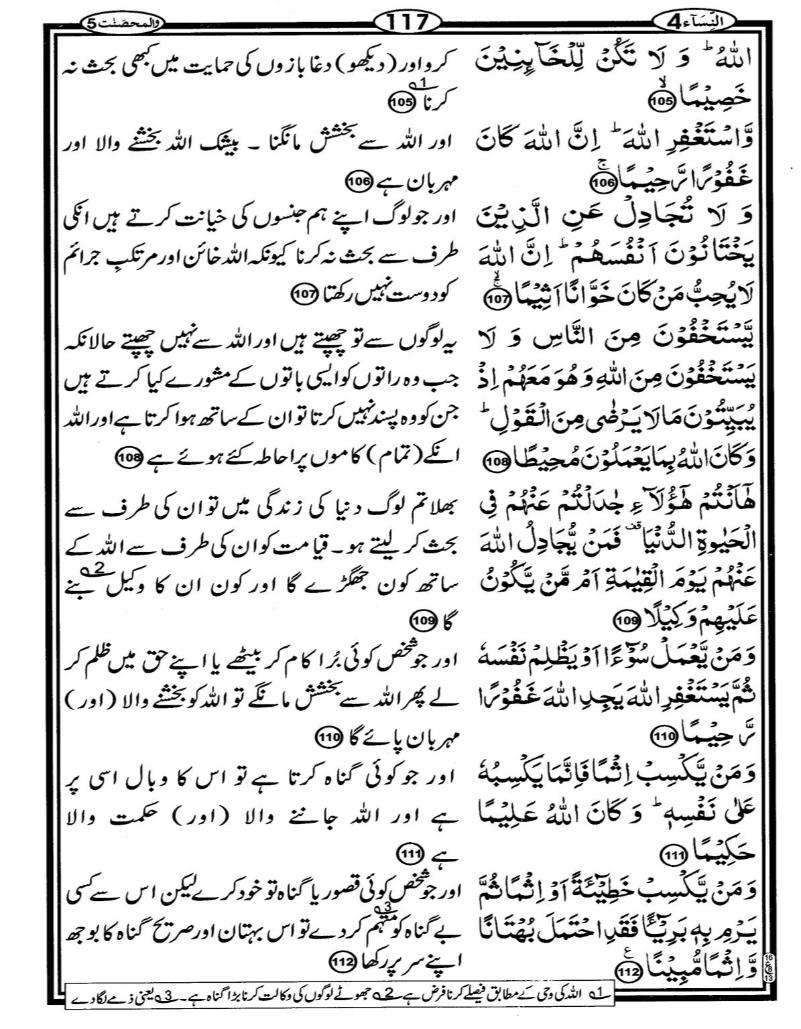 النِّسَآء 4
117
والمحصنٰت 5
اللّٰهُ ؕ وَ لَا تَكُنْ لِّلْخَآىِٕنِيْنَ
خَصِيْمًا ۙ 105
وَّاسْتَغْفِرِ اللّٰهَ ؕ اِنَّ اللّٰهَ كَانَ
غَفُوْرًا رَّحِيْمًا ۚ 106
وَ لَا تُجَادِلْ عَنِ الَّذِيْنَ
يَخْتَانُوْنَ اَنْفُسَهُمْ ؕ اِنَّ اللّٰهَ
لَا يُحِبُّ مَنْ كَانَ خَوَّانًا اَثِيْمًا ۙۚ 107
يَّسْتَخْفُوْنَ مِنَ النَّاسِ وَ لَا
يَسْتَخْفُوْنَ مِنَ اللّٰهِ وَ هُوَ مَعَهُمْ اِذْ
يُبَيِّتُوْنَ مَا لَا يَرْضٰى مِنَ الْقَوْلِ ؕ
وَ كَانَ اللّٰهُ بِمَا يَعْمَلُوْنَ مُحِيْطًا 108
هٰۤاَنْتُمْ هٰۤؤُلَآءِ جٰدَلْتُمْ عَنْهُمْ فِي
الْحَيٰوةِ الدُّنْيَا ۫ فَمَنْ يُّجَادِلُ اللّٰهَ
عَنْهُمْ يَوْمَ الْقِيٰمَةِ اَمْ مَّنْ يَّكُوْنُ
عَلَيْهِمْ وَكِيْلًا 109
وَ مَنْ يَّعْمَلْ سُوْٓءًا اَوْ يَظْلِمْ نَفْسَهٗ
ثُمَّ يَسْتَغْفِرِ اللّٰهَ يَجِدِ اللّٰهَ غَفُوْرًا
رَّحِيْمًا 110
وَ مَنْ يَّكْسِبْ اِثْمًا فَاِنَّمَا يَكْسِبُهٗ
عَلٰى نَفْسِهٖ ؕ وَ كَانَ اللّٰهُ عَلِيْمًا
حَكِيْمًا 111
وَ مَنْ يَّكْسِبْ خَطِيْٓئَةً اَوْ اِثْمًا ثُمَّ
يَرْمِ بِهٖ بَرِيْٓئًا فَقَدِ احْتَمَلَ بُهْتَانًا
وَّ اِثْمًا مُّبِيْنًا 112 ع
کرو اور (دیکھو) دغا بازوں کی حمایت میں کبھی بحث نہ
کرنا ف1 105
اور اللہ سے بخشش مانگنا ۔ بیشک اللہ بخشنے والا اور
مہربان ہے 106
اور جو لوگ اپنے ہم جنسوں کی خیانت کرتے ہیں انکی
طرف سے بحث نہ کرنا کیونکہ اللہ خائن اور مرتکبِ جرائم
کو دوست نہیں رکھتا 107
یہ لوگوں سے تو چھپتے ہیں اور اللہ سے نہیں چھپتے حالانکہ
جب وہ راتوں کو ایسی باتوں کے مشورے کیا کرتے ہیں
جن کو وہ پسند نہیں کرتا تو ان کے ساتھ ہوا کرتا ہے اور اللہ
انکے (تمام) کاموں پر احاطہ کئے ہوئے ہے 108
بھلا تم لوگ دنیا کی زندگی میں تو ان کی طرف سے
بحث کر لیتے ہو۔ قیامت کو ان کی طرف سے اللہ کے
ساتھ کون جھگڑے گا اور کون ان کا وکیل ف2 بنے
گا 109
اور جو شخص کوئی بُرا کام کر بیٹھے یا اپنے حق میں ظلم کر
لے پھر اللہ سے بخشش مانگے تو اللہ کو بخشنے والا (اور)
مہربان پائے گا 110
اور جو کوئی گناہ کرتا ہے تو اس کا وبال اسی پر
ہے اور اللہ جاننے والا (اور) حکمت والا
ہے 111
اور جو شخص کوئی قصور یا گناہ تو خود کرے لیکن اس سے کسی
بے گناہ کو متہم ف3 کر دے تو اس بہتان اور صریح گناہ کا بوجھ
اپنے سر پر رکھا 112
ف1 اللہ کی وحی کے مطابق فیصلے کرنا فرض ہے ف2 جھوٹے لوگوں کی وکالت کرنا بڑا گناہ ہے۔ ف3 یعنی ذمے لگا دے